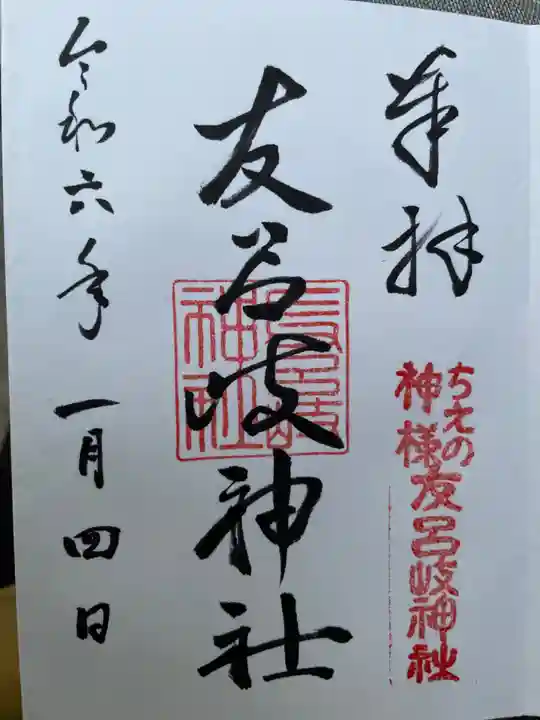 奉拝
ちえの
神様友呂岐神社
友呂岐神社
友呂岐
神社
令和六年一月四日